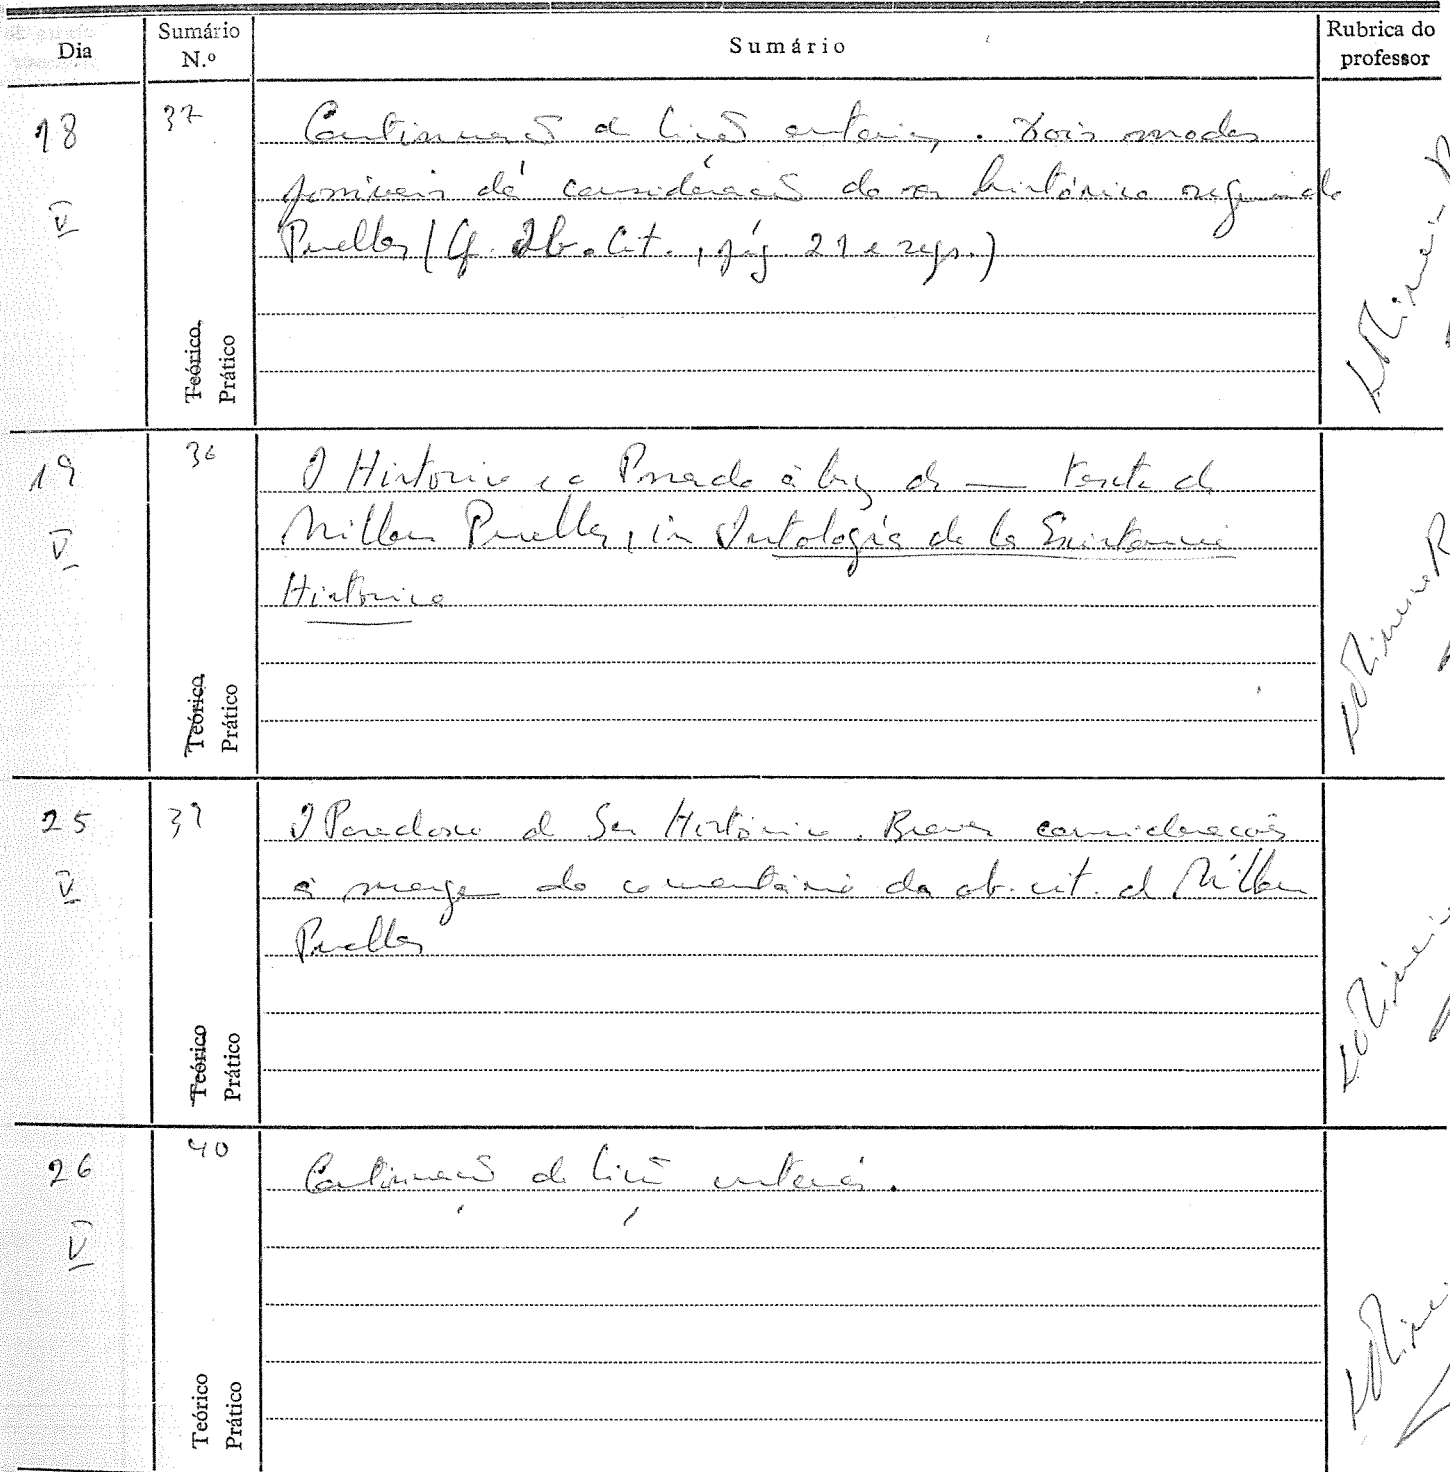 Dia Sumário N.º Sumário Rubrica do professor
18 V 37 Continuação da lição anterior. Dois modos
possíveis de consideração do ser histórico segundo
Puelles (Cf. Ob. Cit., pág. 21 e segs.)
Teórico Prático
19 V 38 O Histórico e o Passado à luz de — texto de
Millan Puelles, in Ontología de la Existencia
Histórica
Teórico Prático
25 V 39 O Paradoxo do Ser Histórico. Breves considerações
à margem do comentário da ob. cit. de Millan
Puelles
Teórico Prático
26 V 40 Continuação da lição anterior.
Teórico Prático